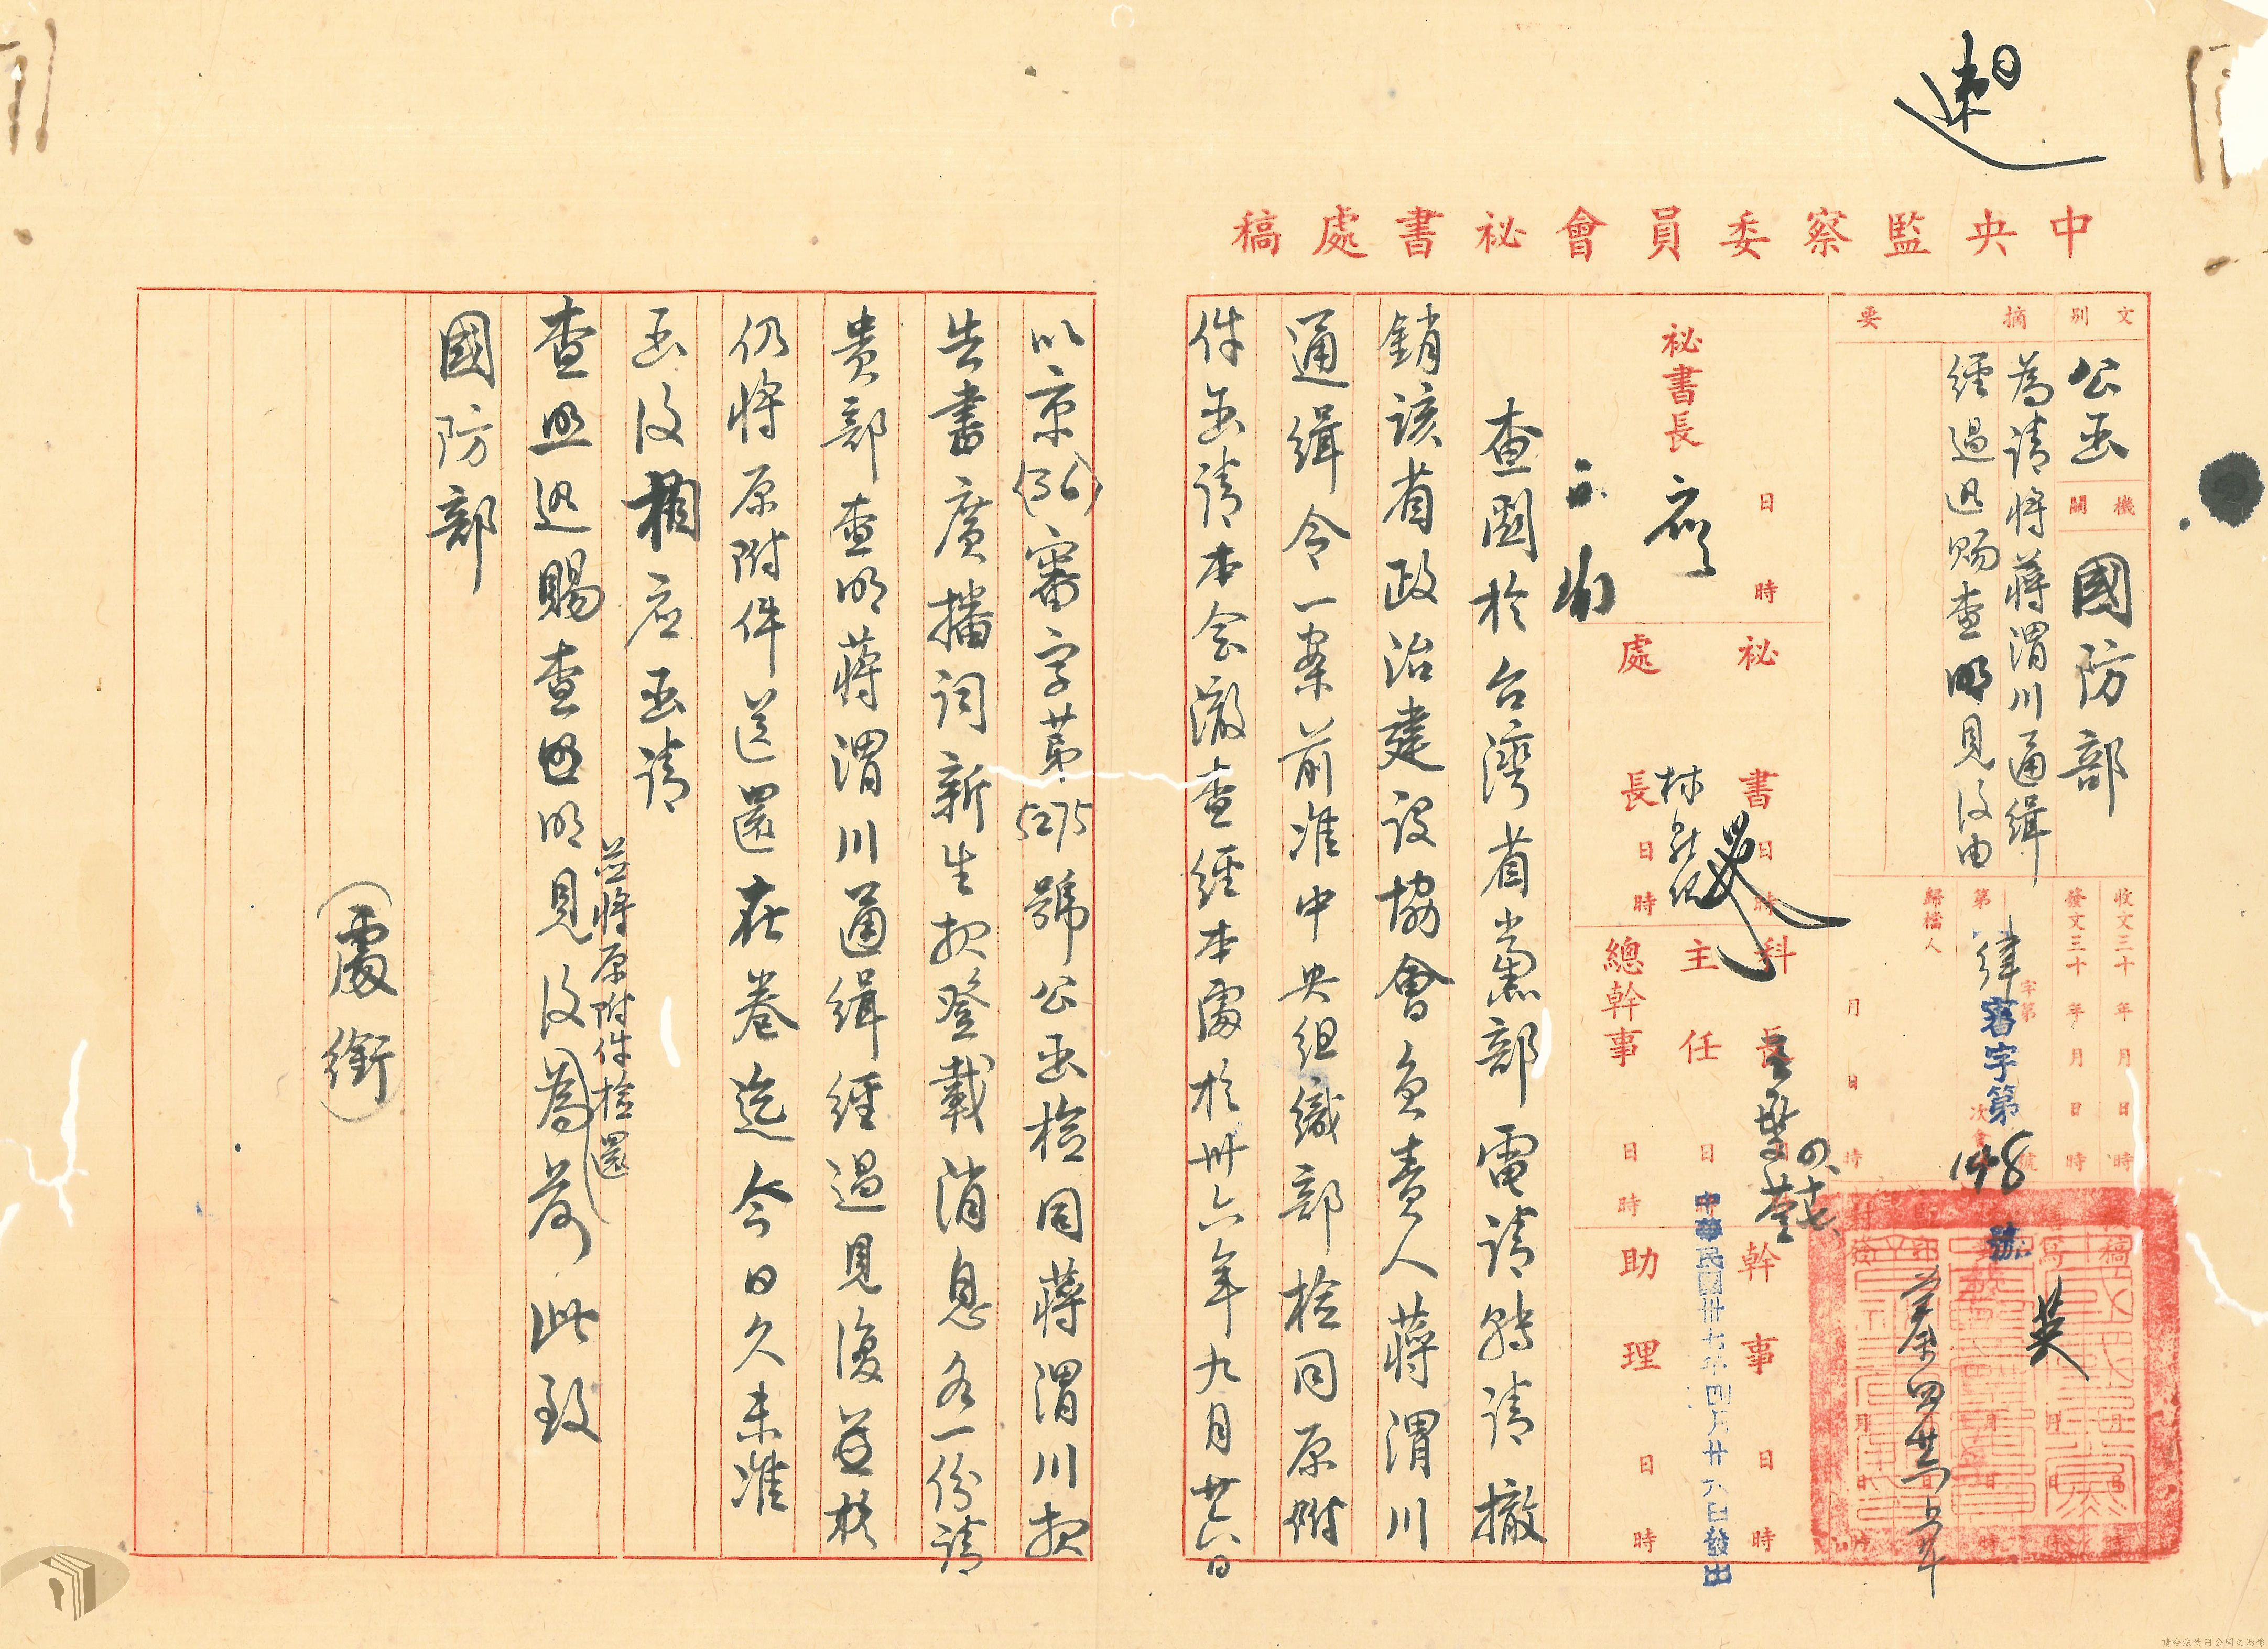 速
中央監察委員會祕書處稿
文別
公函
機關
國防部
摘要
為請將蔣渭川通緝
經過迅賜查明見復由
收文三十 年 月 日 時
發文三十 年 月 日 時
字第 號
律審字第148號
第 次會
歸檔人
月 日 時
祕書長
日 時
祕書
日 時
處長
日 時
科長
主任
日
總幹事
日 時
幹事
日 時
助理
日 時
中華民國卅七年四月廿六日發出
查關於台灣省黨部電請轉請撤
銷該省政治建設協會負責人蔣渭川
通緝令一案前准中央組織部檢同原附
件函請本会澈查經本處於卅六年九月廿六日
以京(36)審字第5275號公函檢同蔣渭川報
告書廣播詞新生報登載消息各一份請
貴部查明蔣渭川通緝經過見復並於
仍將原附件送還在卷迄今日久未准
函復相應函請
查照迅賜查明見復
並將原附件檢還
為荷此致
國防部
(處銜)
請合法使用公開之影像